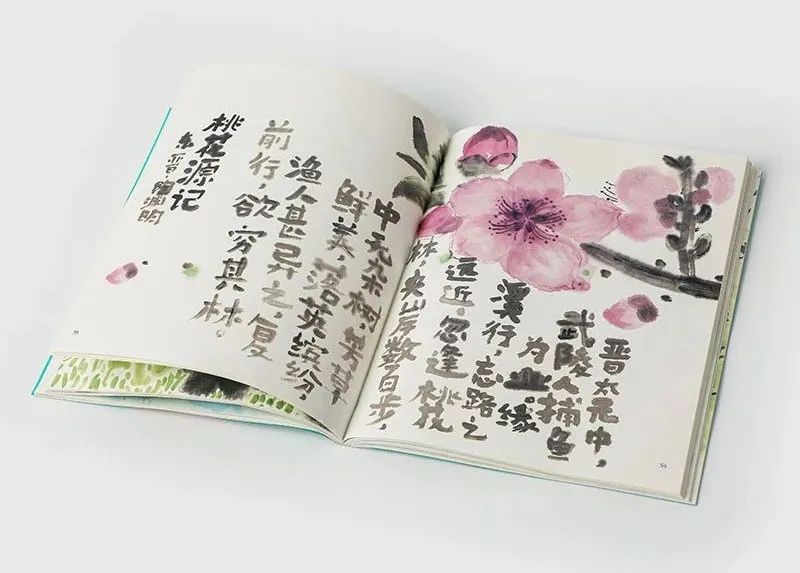 晋太元中，
武陵人捕鱼
为业。缘
溪行，忘路之
远近，忽逢桃花
林，夹岸数百步，
中无杂树，芳草
鲜美，落英缤纷，
渔人甚异之，复
前行，欲穷其林。
桃花源记
东晋 陶渊明
59